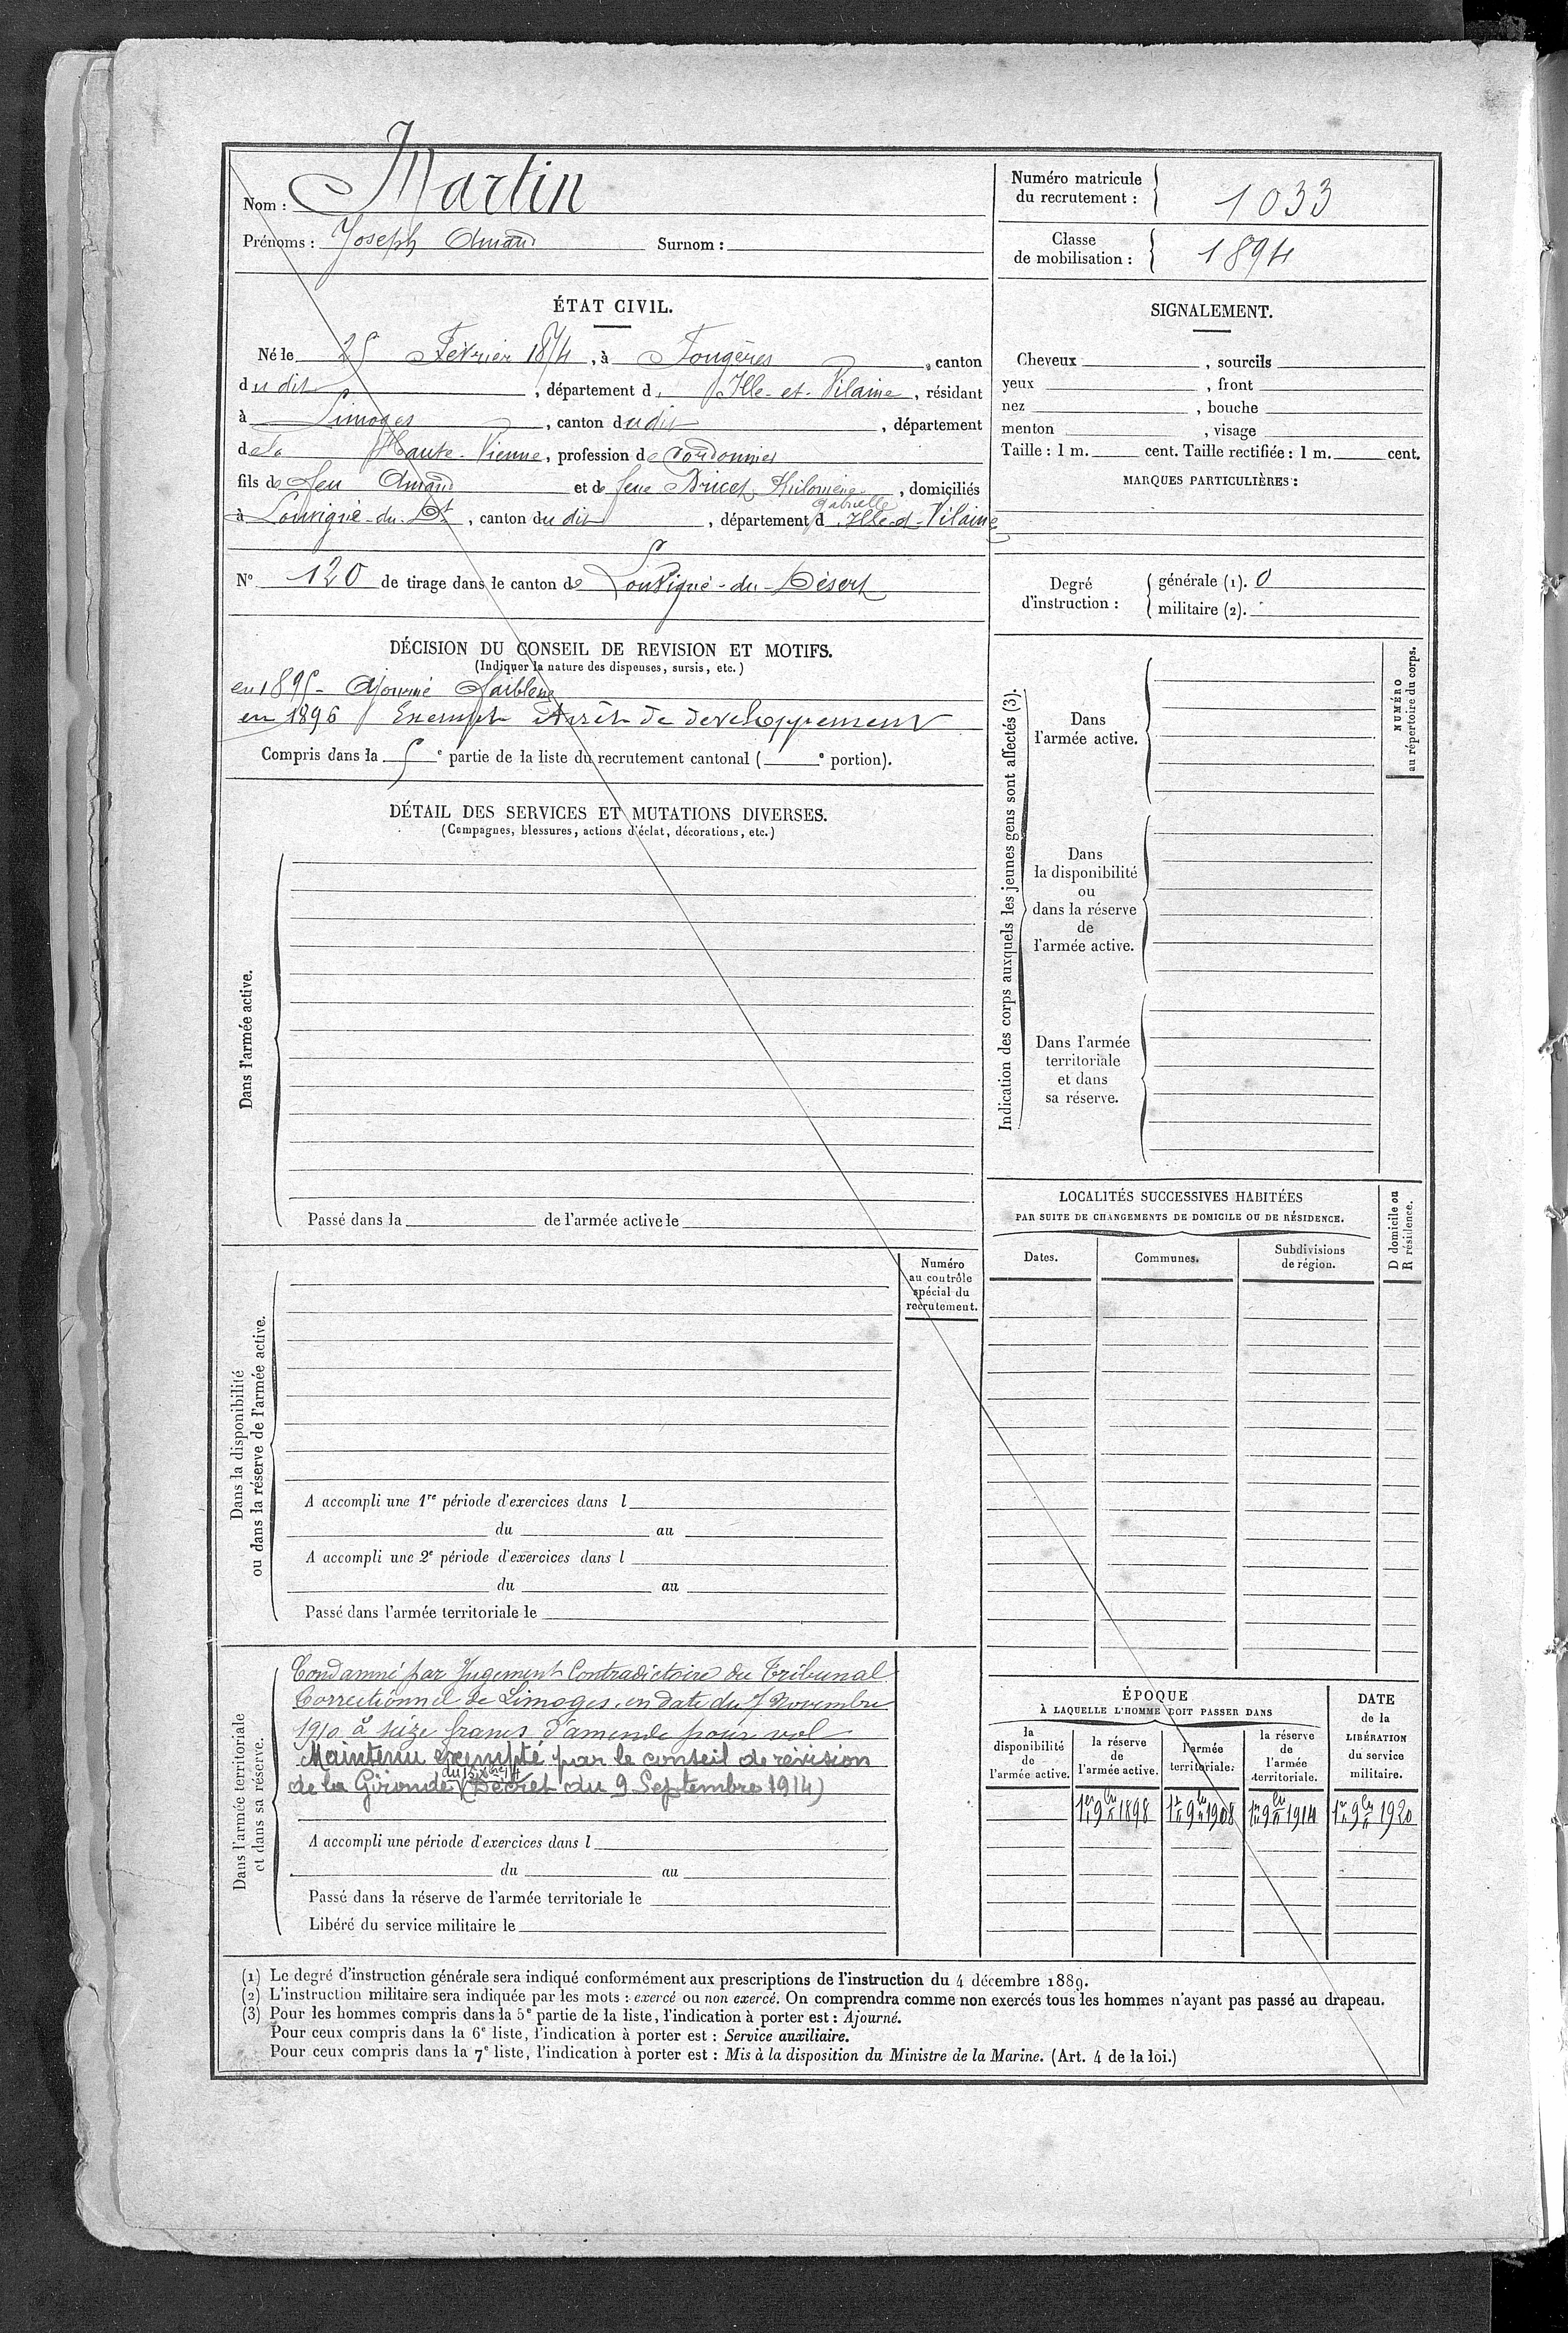 Nom : Martin
Prénoms : Joseph Amand Surnom :
Numéro matricule du recrutement : 1033
Classe de mobilisation : 1894
ÉTAT CIVIL.
Né le 25 Février 1874, à Fougères, canton
du dit, département d. Ille-et-Vilaine, résidant
à Limoges, canton du dit, département
de la Haute-Vienne, profession de Cordonnier
fils de feu Amand et de feue Bricet, Philomène Gabrielle, domiciliés
à Louvigné-du-Dt, canton du dit, département d. Ille-et-Vilaine
N° 120 de tirage dans le canton de Louvigné-du-Désert
DÉCISION DU CONSEIL DE REVISION ET MOTIFS.
(Indiquer la nature des dispenses, sursis, etc.)
en 1895 - Ajourné Faiblesse
en 1896 Exempté Arrêt de developpement
Compris dans la 5e partie de la liste du recrutement cantonal ( e portion).
DÉTAIL DES SERVICES ET MUTATIONS DIVERSES.
(Campagnes, blessures, actions d'éclat, décorations, etc.)
Dans l'armée active.
Passé dans la de l'armée active le
Dans la disponibilité
ou dans la réserve de l'armée active.
Numéro
au contrôle
spécial du
recrutement.
A accompli une 1re période d'exercices dans l
du au
A accompli une 2e période d'exercices dans l
du au
Passé dans l'armée territoriale le
Dans l'armée territoriale
et dans sa réserve.
Condamné par Jugement Contradictoire du Tribunal
Correctionnel de Limoges, en date du 7 Novembre
1910 à seize francs d'amende pour vol
Maintenu exempté par le conseil de révision
de la Gironde (Décret du 9 Septembre 1914)
A accompli une période d'exercices dans l
du au
Passé dans la réserve de l'armée territoriale le
Libéré du service militaire le
SIGNALEMENT.
Cheveux , sourcils
yeux , front
nez , bouche
menton , visage
Taille : 1 m. cent. Taille rectifiée : 1 m. cent.
MARQUES PARTICULIÈRES :
Degré d'instruction :
générale (1). 0
militaire (2).
Indication des corps auxquels les jeunes gens sont affectés (3).
Dans
l'armée active.
Dans
la disponibilité
ou
dans la réserve
de
l'armée active.
Dans l'armée
territoriale
et dans
sa réserve.
NUMÉRO
au répertoire du corps.
LOCALITÉS SUCCESSIVES HABITÉES
PAR SUITE DE CHANGEMENTS DE DOMICILE OU DE RÉSIDENCE.
Dates. Communes. Subdivisions de région.
D domicile ou
R résidence.
ÉPOQUE
À LAQUELLE L'HOMME DOIT PASSER DANS
la disponibilité de l'armée active.
la réserve de l'armée active.
l'armée territoriale.
la réserve de l'armée territoriale.
DATE
de la
LIBÉRATION
du service
militaire.
1er 9bre 1898 1er 9bre 1908 1er 9bre 1914 1er 9bre 1920
(1) Le degré d'instruction générale sera indiqué conformément aux prescriptions de l'instruction du 4 décembre 1889.
(2) L'instruction militaire sera indiquée par les mots : exercé ou non exercé. On comprendra comme non exercés tous les hommes n'ayant pas passé au drapeau.
(3) Pour les hommes compris dans la 5e partie de la liste, l'indication à porter est : Ajourné.
Pour ceux compris dans la 6e liste, l'indication à porter est : Service auxiliaire.
Pour ceux compris dans la 7e liste, l'indication à porter est : Mis à la disposition du Ministre de la Marine. (Art. 4 de la loi.)